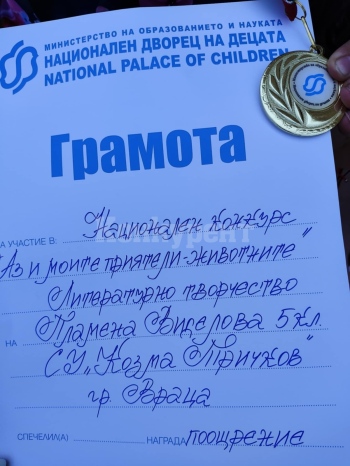 МИНИСТЕРСТВО НА ОБРАЗОВАНИЕТО И НАУКАТА
НАЦИОНАЛЕН ДВОРЕЦ НА ДЕЦАТА
NATIONAL PALACE OF CHILDREN
Грамота
ЗА УЧАСТИЕ В: Национален конкурс
"Аз и моите приятели-животните"
Литературно творчество
НА Пламена Виделова 5 кл.
СУ "Козма Тричков"
гр. Враца
СПЕЧЕЛИЛ(А) НАГРАДА поощрение
Конкурент